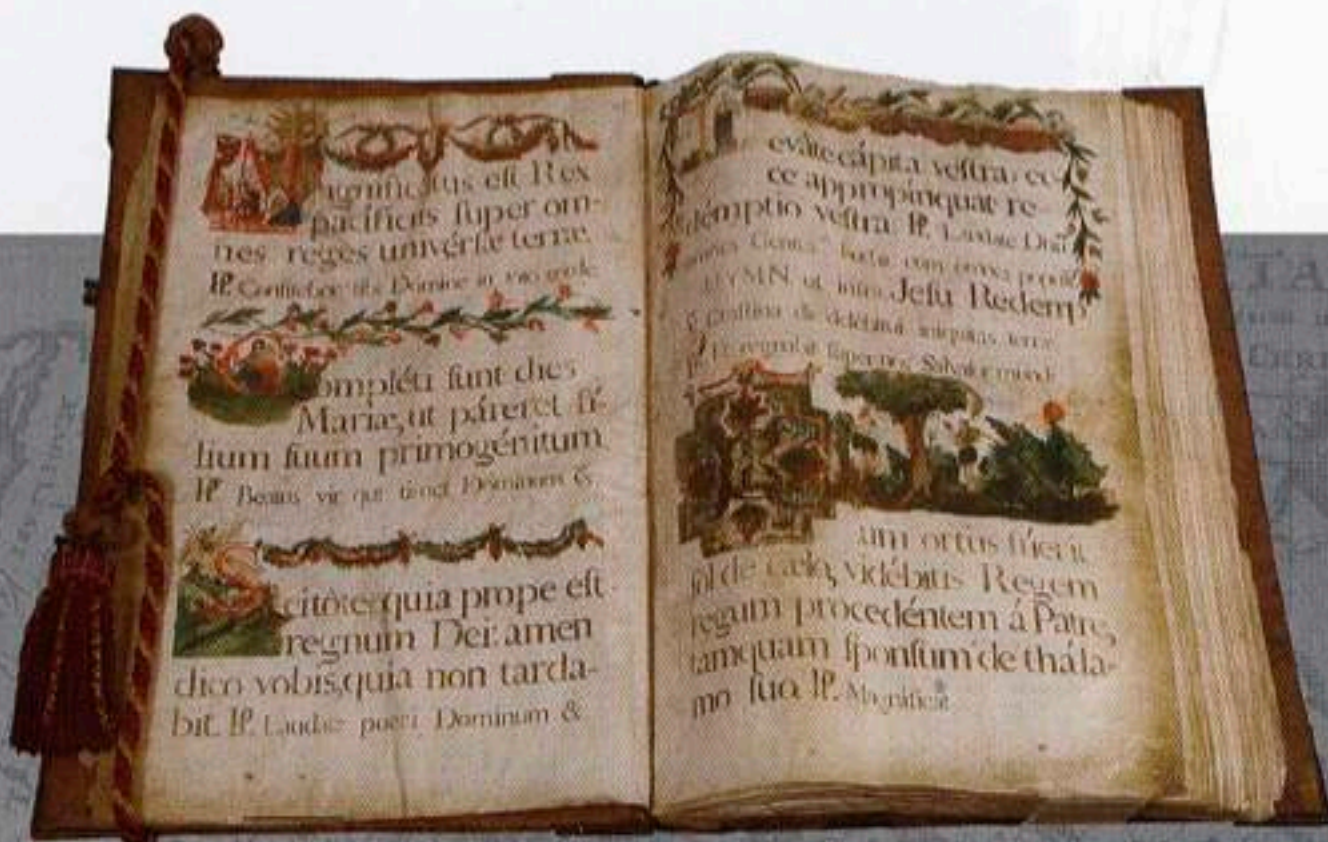 Magnificatus est Rex
pacificus super om-
nes reges univérsæ terræ.
℟. Confitebor tibi Domine in toto corde
Compléti sunt dies
Mariæ, ut páreret fí-
lium suum primogénitum.
℟. Beatus vir qui timet Dominum &
Scitôte quia prope est
regnum Dei: amen
dico vobis, quia non tarda-
bit. ℟. Laudate pueri Dominum &
evâte cápita vestra: ec-
ce appropinquat re-
démptio vestra. ℟. Laudate Dnū
omnes Gentes
HYMN. ut infra. Jesu Redemp
Crastina die delébitur iniquitas terræ
Et regnabit super nos Salvator mundi
um ortus fúerit
sol de cælo, vidébitis Regem
regum procedéntem á Patre,
tamquam sponsum de thála-
mo suo. ℟. Magnificat
TA